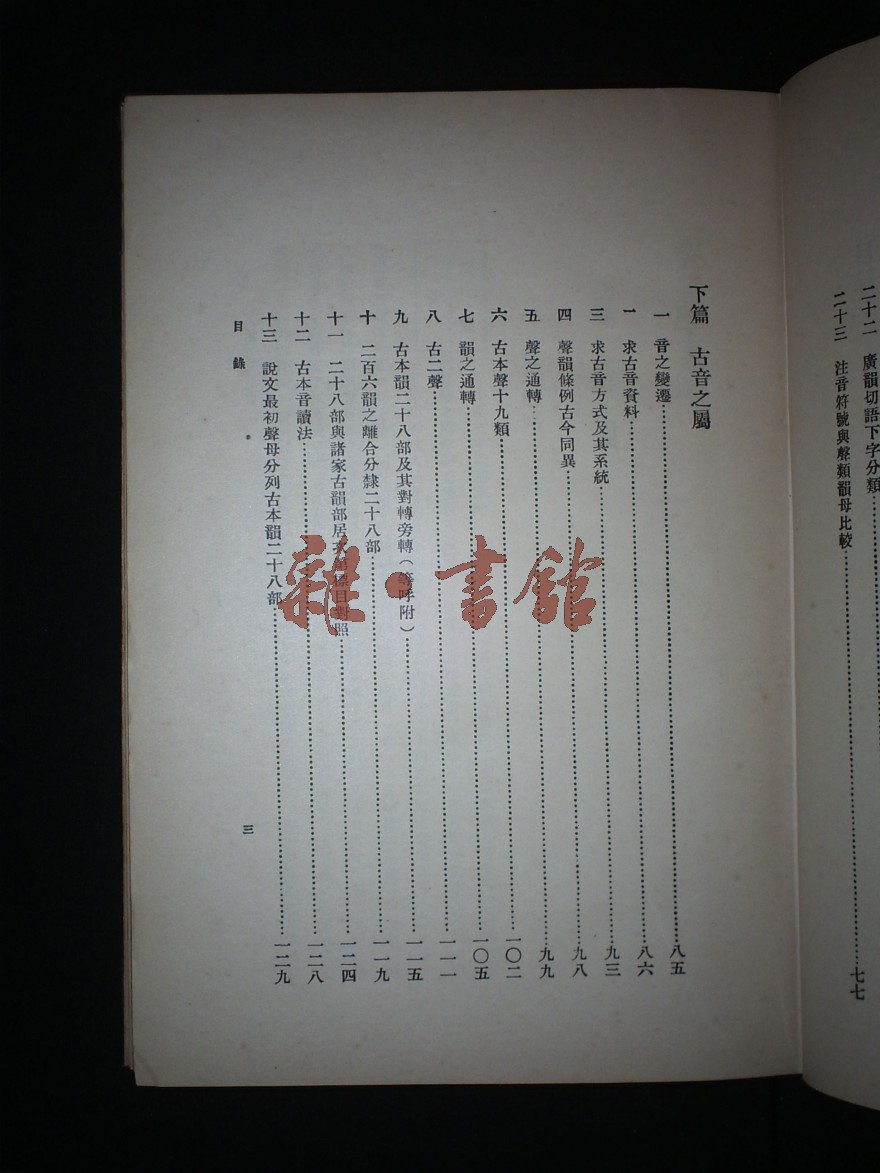 二十二 廣韻切語下字分類
二十三 注音符號與聲類韻母比較……七七
下篇 古音之屬
一 音之變遷……八五
一 求古音資料……八六
三 求古音方式及其系統……九三
四 聲韻條例古今同異……九八
五 聲之通轉……九九
六 古本聲十九類……一〇二
七 韻之通轉……一〇五
八 古二聲……一一一
九 古本韻二十八部及其對轉旁轉(等呼附)……一一五
十 二百六韻之離合分隸二十八部……一一九
十一 二十八部與諸家古韻部居次第標目對照……一二四
十二 古本音讀法……一二八
十三 說文最初聲母分列古本韻二十八部……一二九
目錄
三
雜·書館